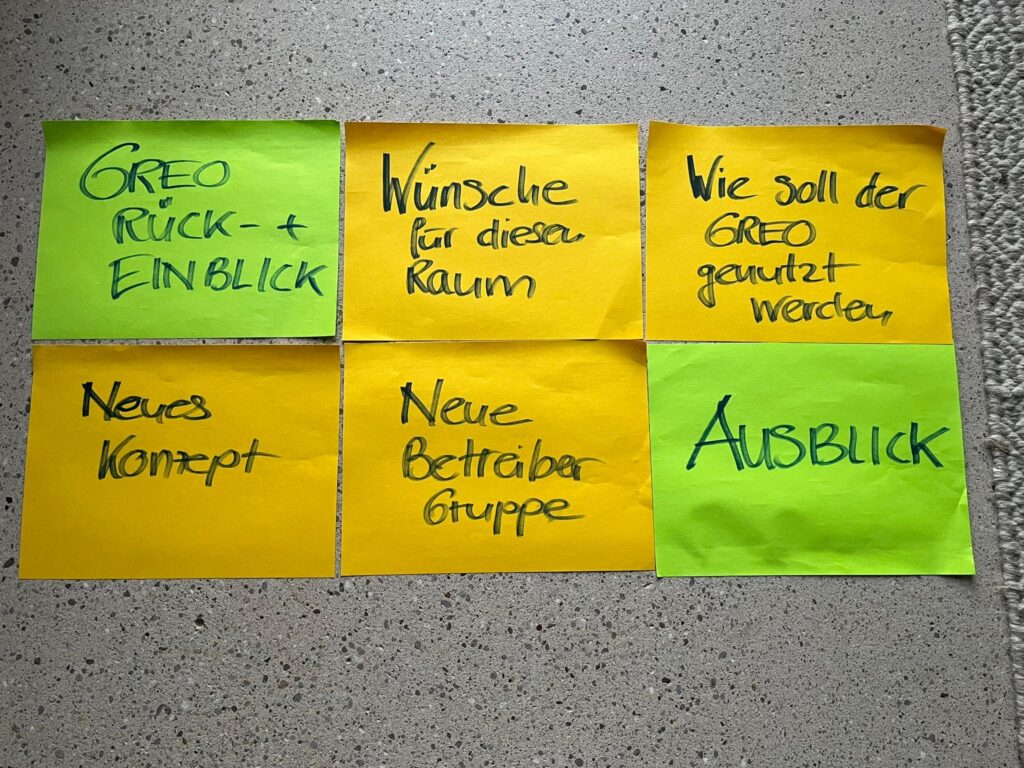 GREO
RÜCK- +
EINBLICK
Wünsche
für diesen
Raum
Wie soll der
GREO
genutzt
werden
Neues
Konzept
Neue
Betreiber
Gruppe
AUSBLICK